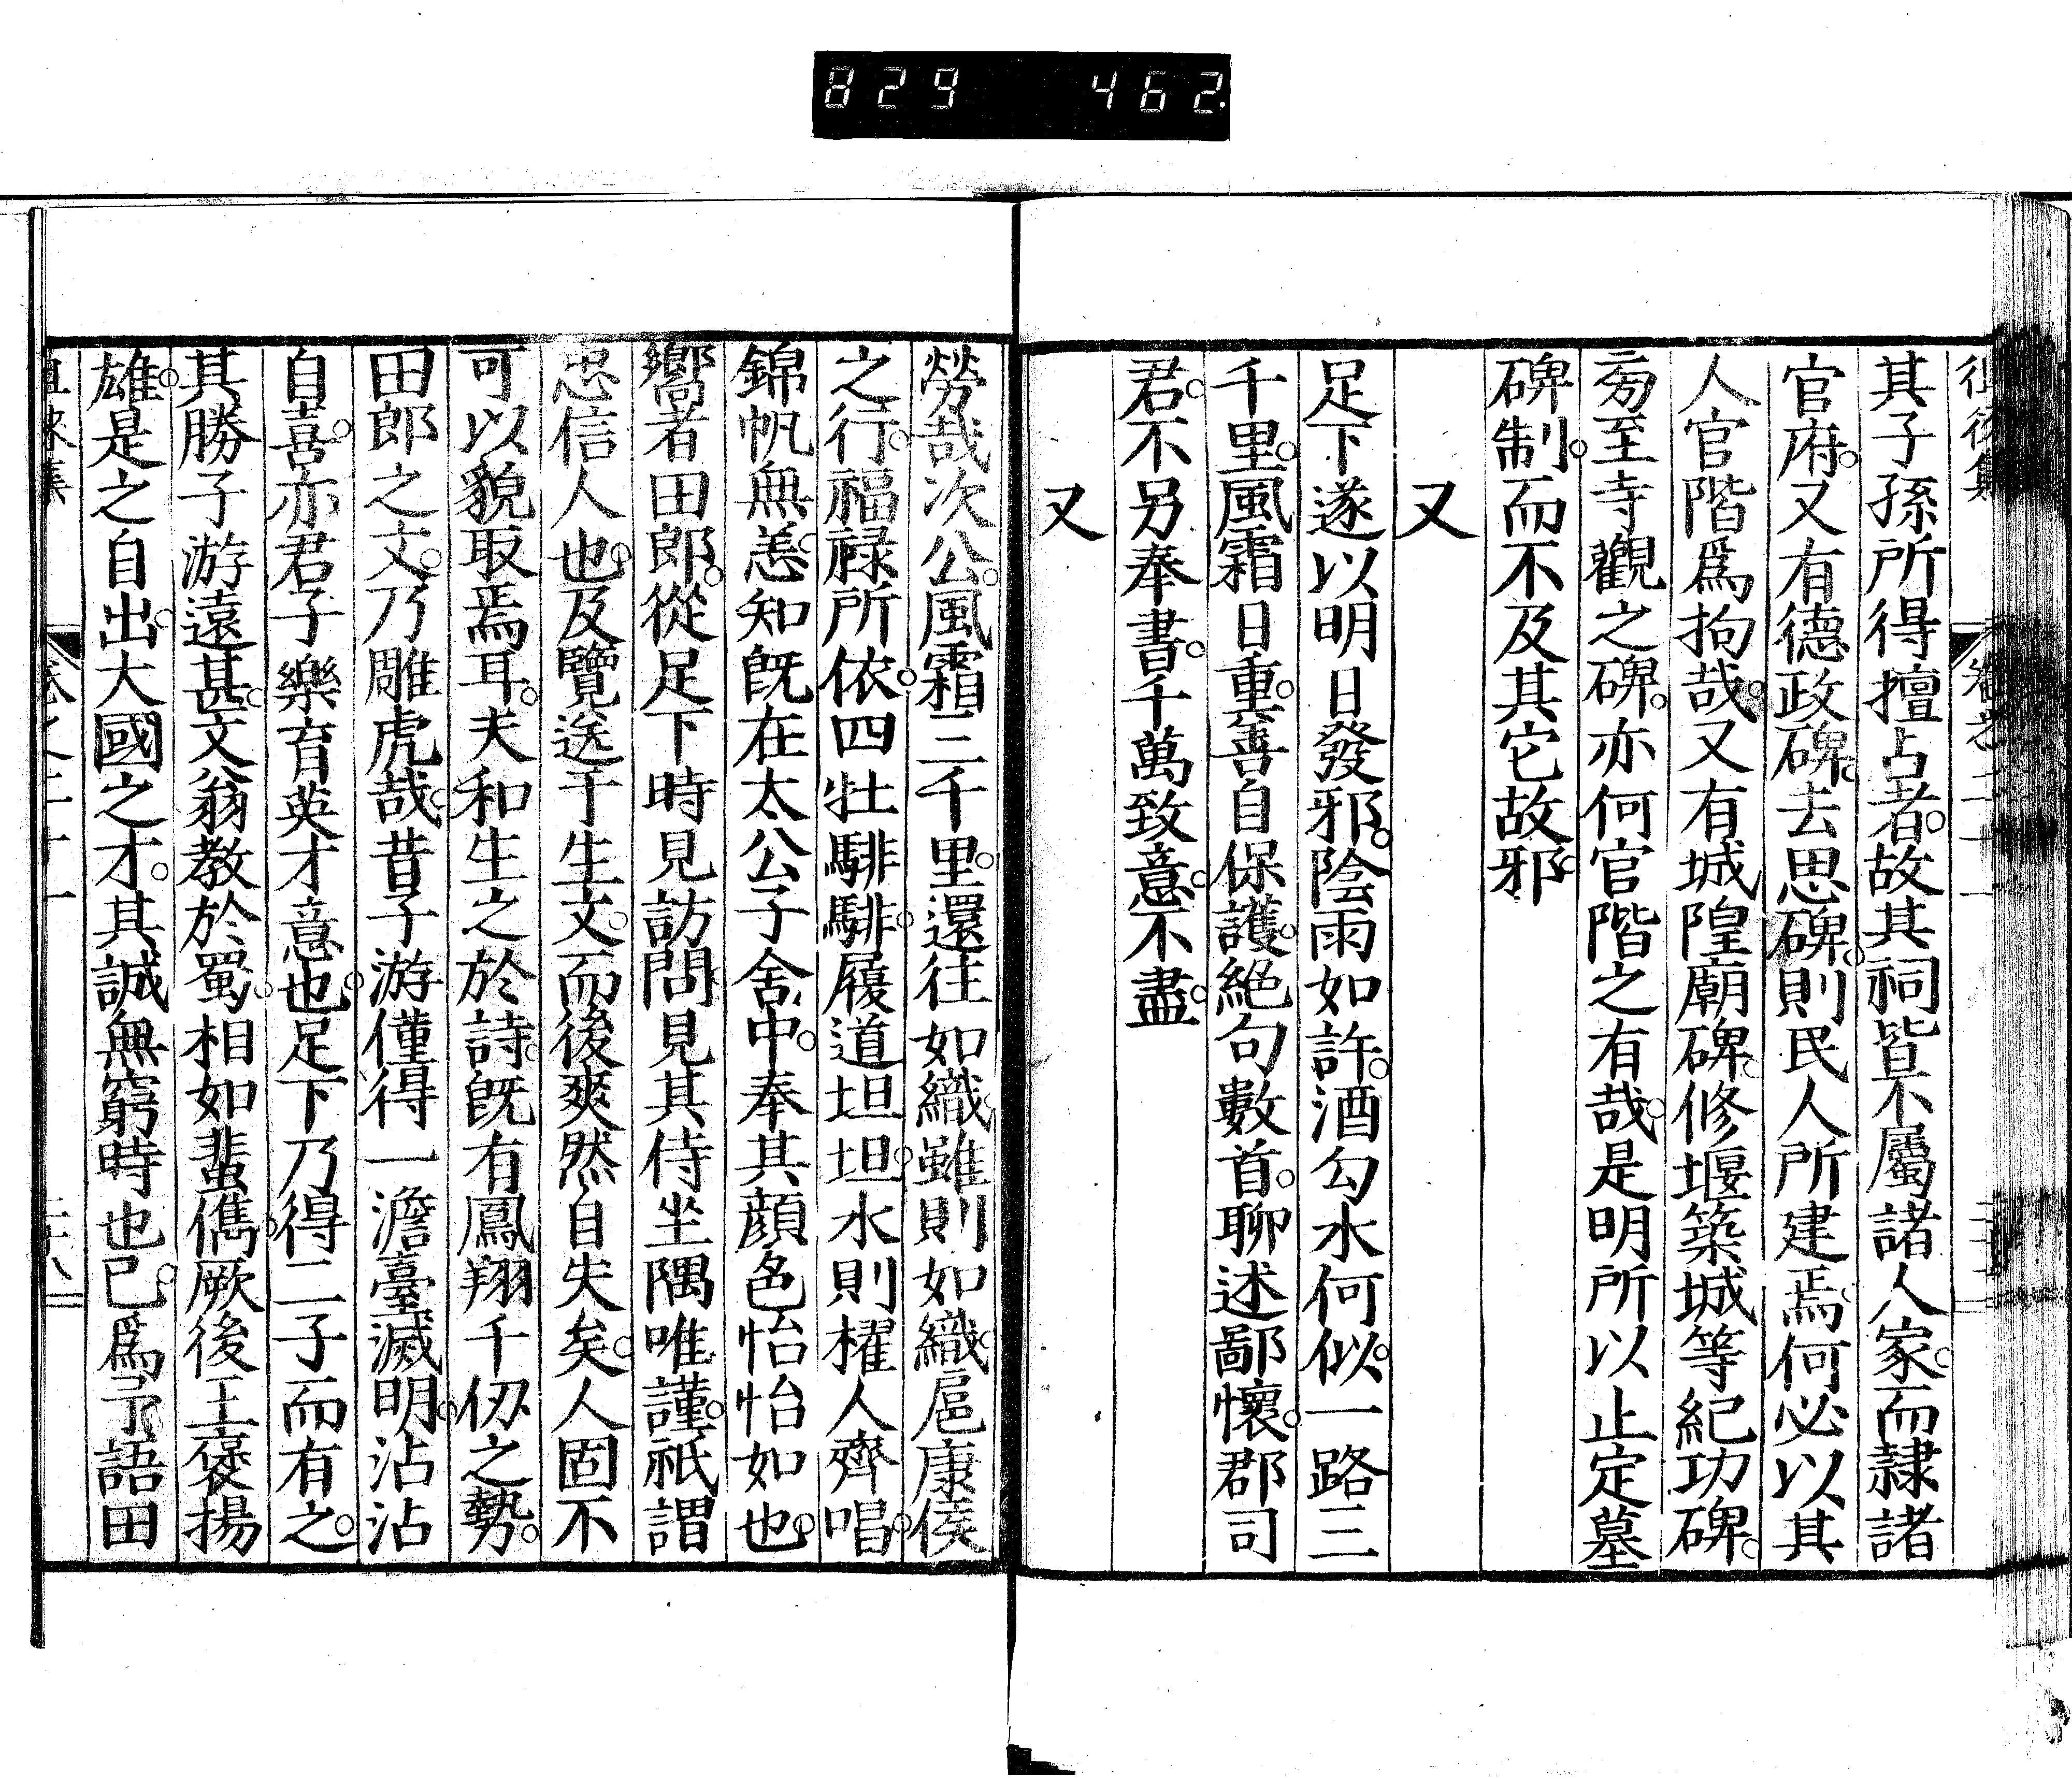 829 462
其子孫所得擅占者。故其祠皆不屬諸人家。而隷諸
官府。又有德政碑。去思碑。則民人所建焉。何必以其
人官階爲拘哉。又有城隍廟碑。修堰築城等紀功碑。
至寺觀之碑。亦何官階之有哉。是明所以止定墓
碑制。而不及其它故邪。
又
足下遂以明日發邪。陰雨如許。酒勾水何似。一路三
千里。風霜日重。善自保護。絶句數首。聊述鄙懷。郡司
君。不另奉書。千萬致意。不盡。
又
勞哉次公。風霜三千里。還往如織。雖則如織。扈康侯
之行。福祿所依。四牡騑騑。履道坦坦。水則櫂人齊唱。
錦帆無恙。知旣在太公子舍中。奉其顔色怡怡如也。
嚮者田郎。從足下時見訪問。見其侍坐隅唯謹。祇謂
忠信人也。及覽送于生文。而後爽然自失矣。人固不
可以貌取焉耳。夫和生之於詩。旣有鳳翔千仞之勢。
田郎之文。乃雕虎哉。昔子游僅得一澹臺滅明。沾沾
自喜。亦君子樂育英才意也。足下乃得二子而有之。
其勝子游遠甚。文翁教於蜀。相如蜚儁。厥後王褒揚
雄。是之自出。大國之才。其誠無窮時也已。爲予語田
卷之二十一